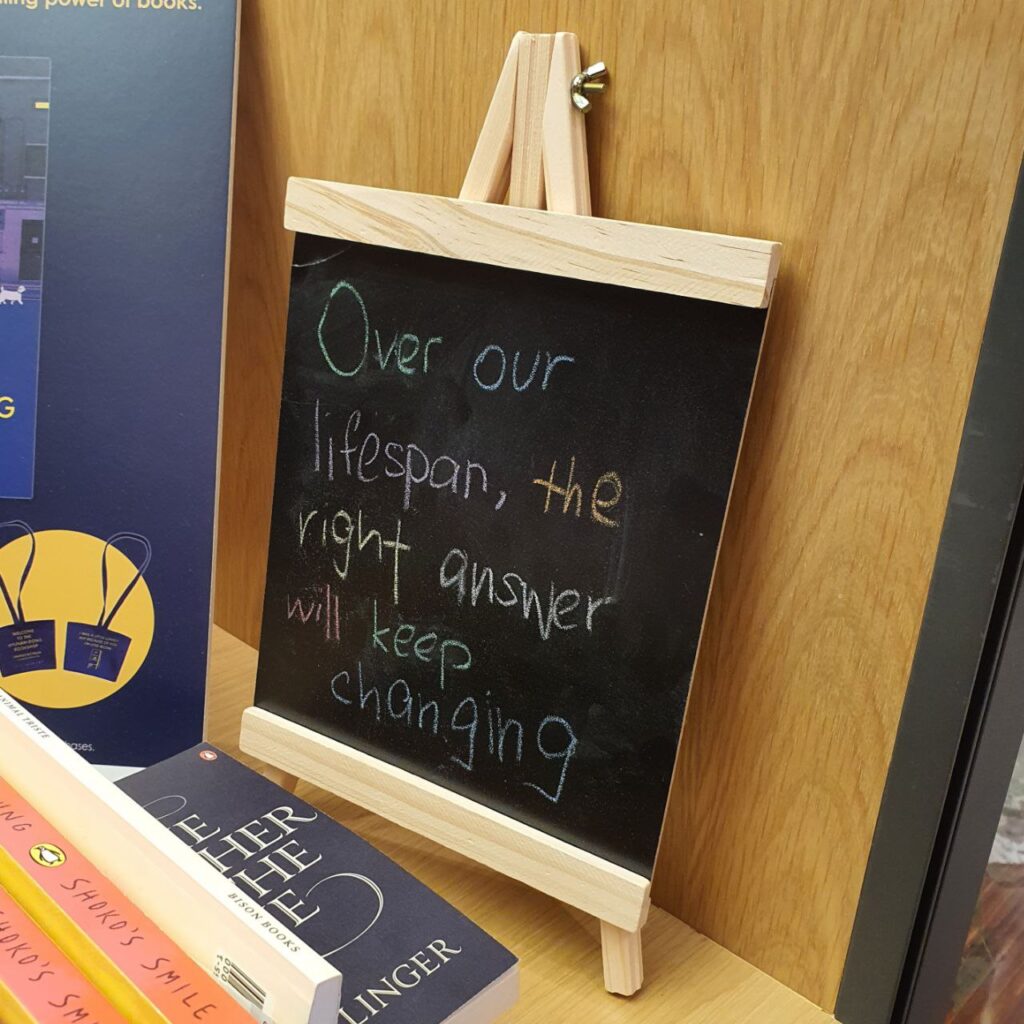 ling power of books.
G
Over our
lifespan, the
right answer
will keep
changing
ases.
NIMAL TRISTE
BISON BOOKS
HER
HE
LINGER
NG SHOKO'S SMILE
SHOKO'S SM